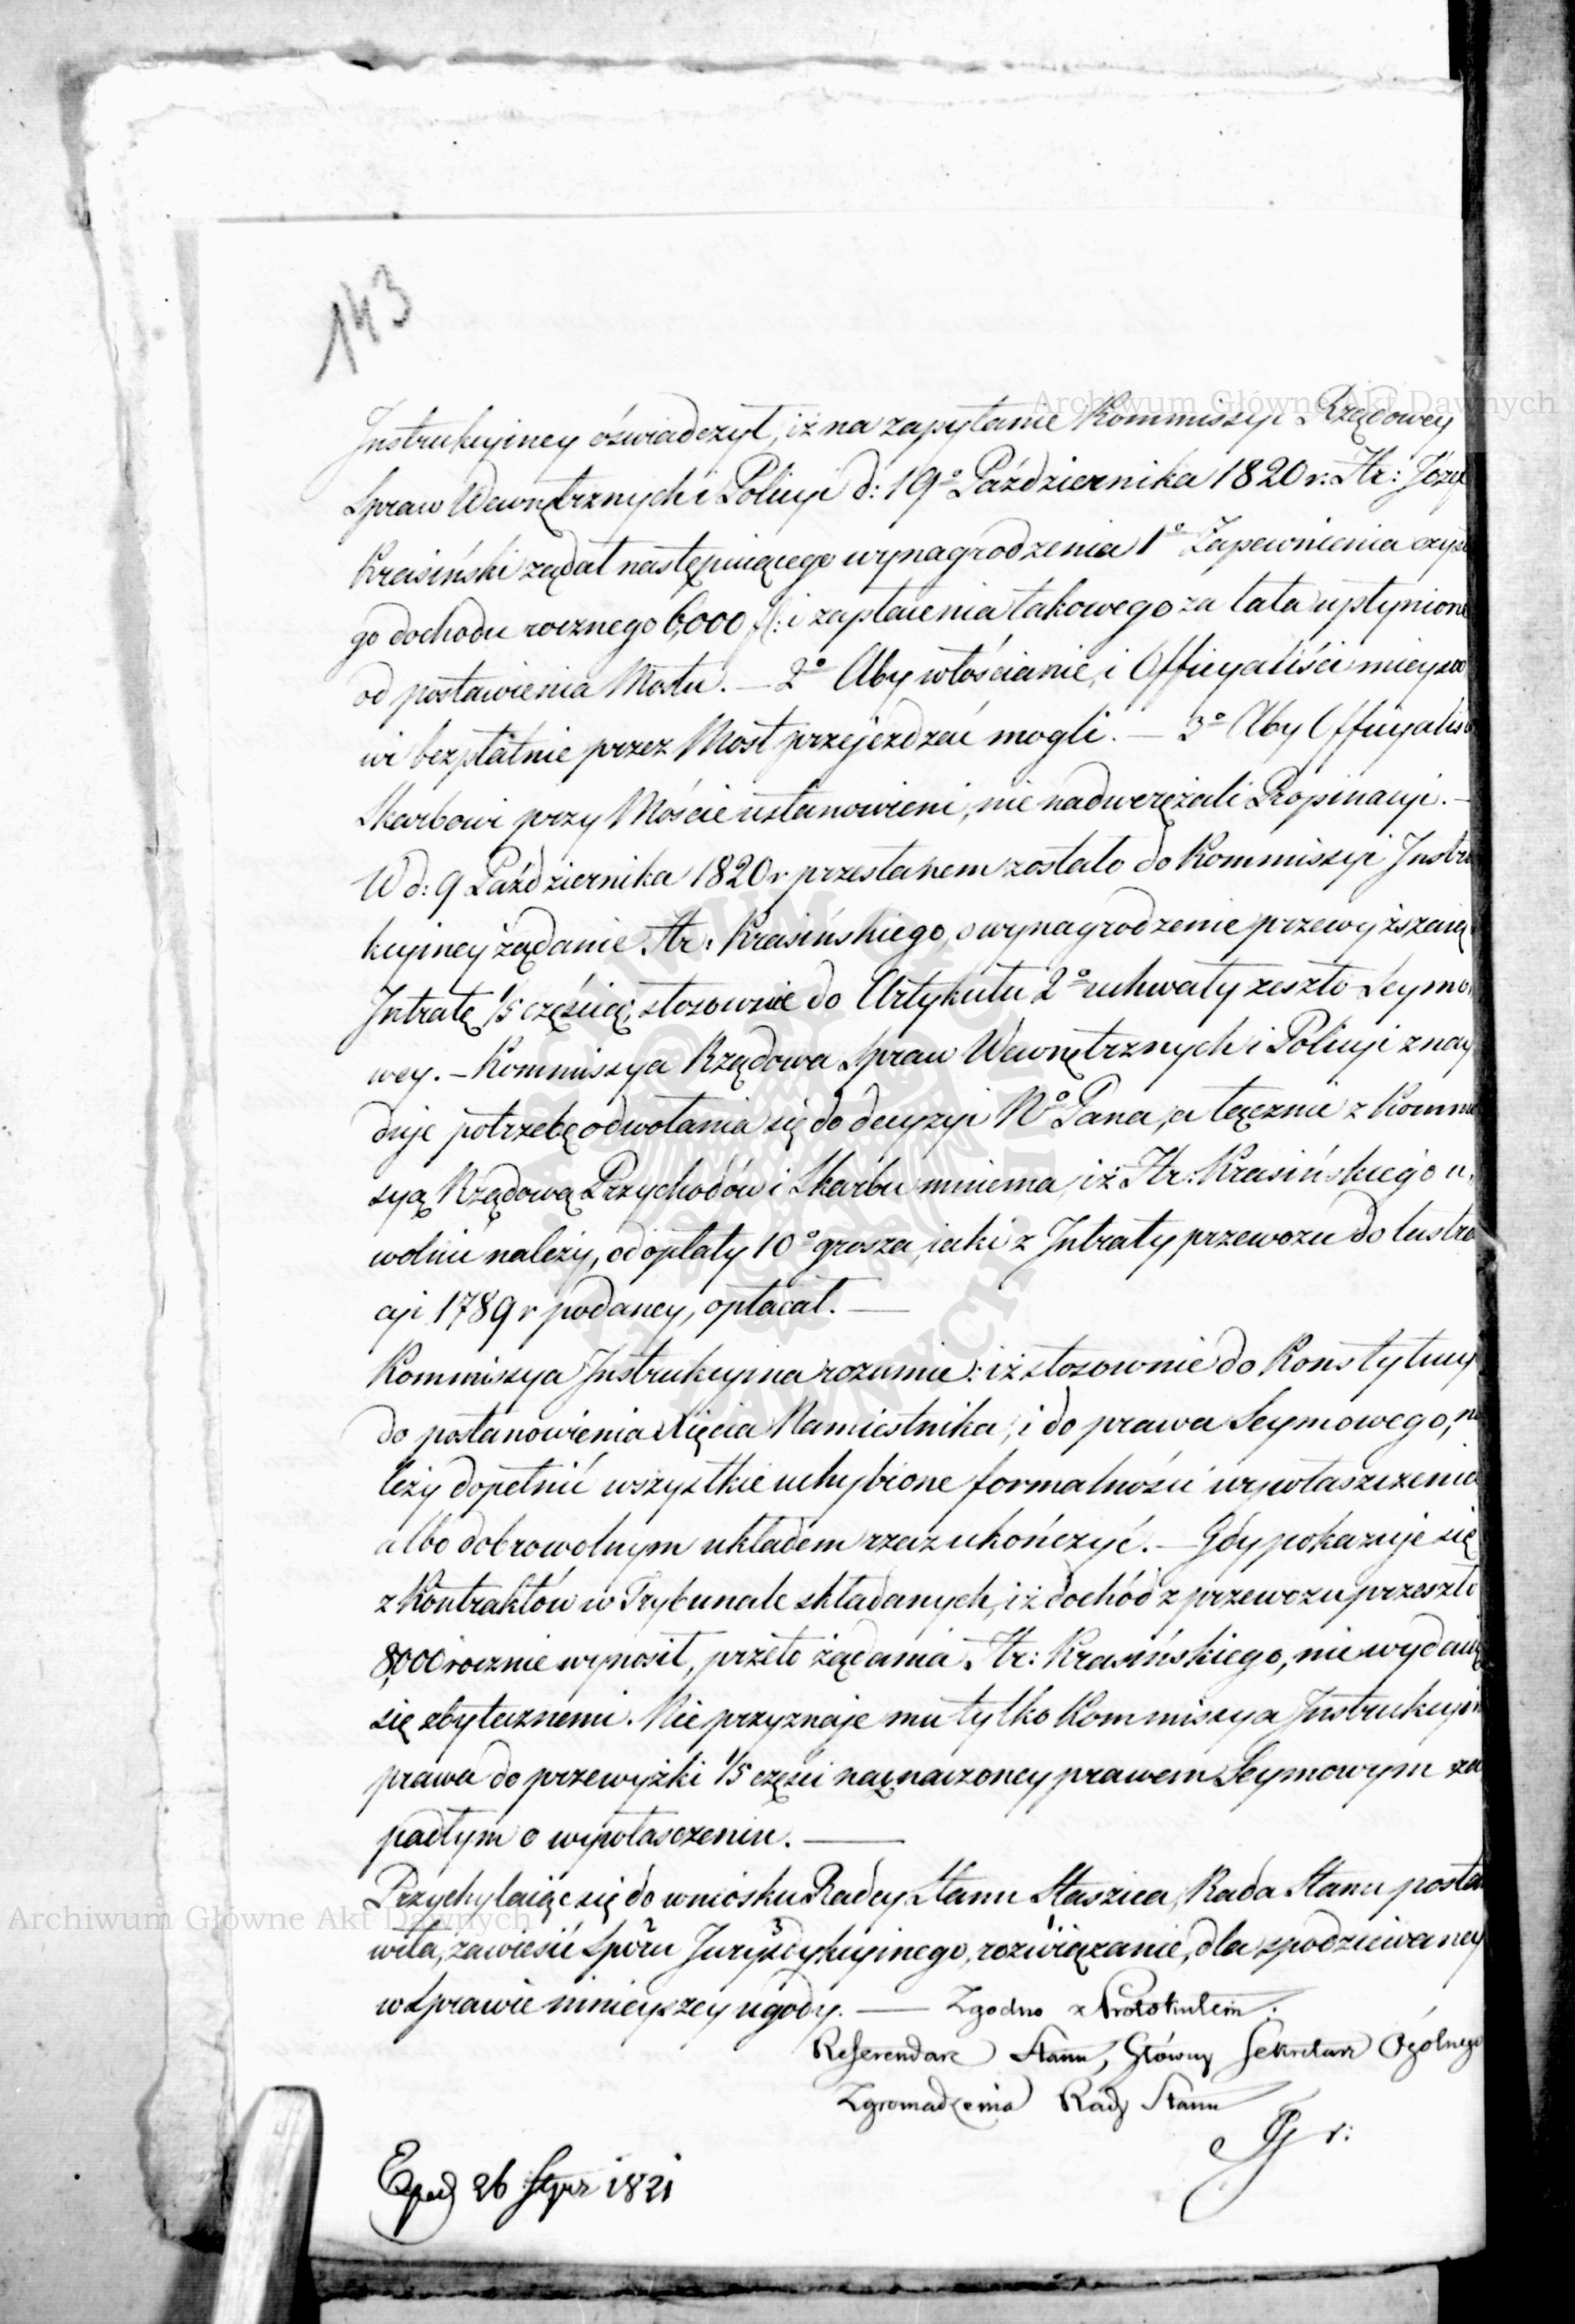 143
Instrukcyiney oświadczył, iż na zapytanie Kommissyi Rządowey
Spraw Wewnętrznych i Policyi d: 19º Października 1820 r: Hr: Józef
Krasiński żądał następuiącego wynagrodzenia 1º Zapewnienia czyste
go dochodu rocznego 6,000 fl: i zapłacenia takowego za lata upłynione
od postawienia Mostu. — 2º Aby włościanie, i Officyaliści mieysco
wi bezpłatnie przez Most przejeżdżać mogli. — 3º Aby Officyaliści
Skarbowi przy Moście ustanowieni, nie nadwerężali Propinacyi. —
W d: 9 Października 1820 r. przesłanem zostało do Kommissyi Instru
kcyiney żądanie Hr: Krasińskiego, o wynagrodzenie przewyższaiące
Intratę 1/5 częścią, stosownie do Artykułu 2º uchwały zeszło Seymo
wey. — Kommissya Rządowa Spraw Wewnętrznych i Policyi znay
duje potrzebę odwołania się do decyzyi Nº Pana, a łącznie z Kommis
syą Rządową Przychodów i Skarbu mniema, iż Hr: Krasińskiego u,
wolnić należy, od opłaty 10º grosza, jaki z Intraty przewozu do lustra
cyi 1789 r podaney, opłacał. —
Kommissya Instrukcyina rozumie: iż stosownie do Konstytucyi
do postanowienia Xięcia Namiestnika, i do prawa Seymowego, na
leży dopełnić wszystkie uchybione formalności wywłaszczenia
albo dobrowolnym układem rzecz ukończyć. — Gdy pokazuje się
z Kontraktów w Trybunale składanych, iż dochód z przewozu przeszło
8,000 rocznie wynosił, przeto żądania Hr: Krasińskiego, nie wydaią
się zbytecznemi. Nie przyznaje mu tylko Kommissya Instrukcyina
prawa do przewyżki 1/5 części naznaczoney prawem Seymowym za
padłym o wywłasczeniu. —
Przychylaiąc się do wniosku Radcy Stanu Staszica, Rada Stanu posta
wiła, zawiesić Sporu Juryzdykcyinego, rozwiązanie, dla spodziewaney
w Sprawie ninieyszey ugody. — Zgodno z Protokułem:
Referendarz Stanu, Główny Sekretarz Ogólnego
Zgromadzenia Rady Stanu
Exped 26 Stycz 1821
Archiwum Główne Akt Dawnych
Archiwum Główne Akt Dawnych